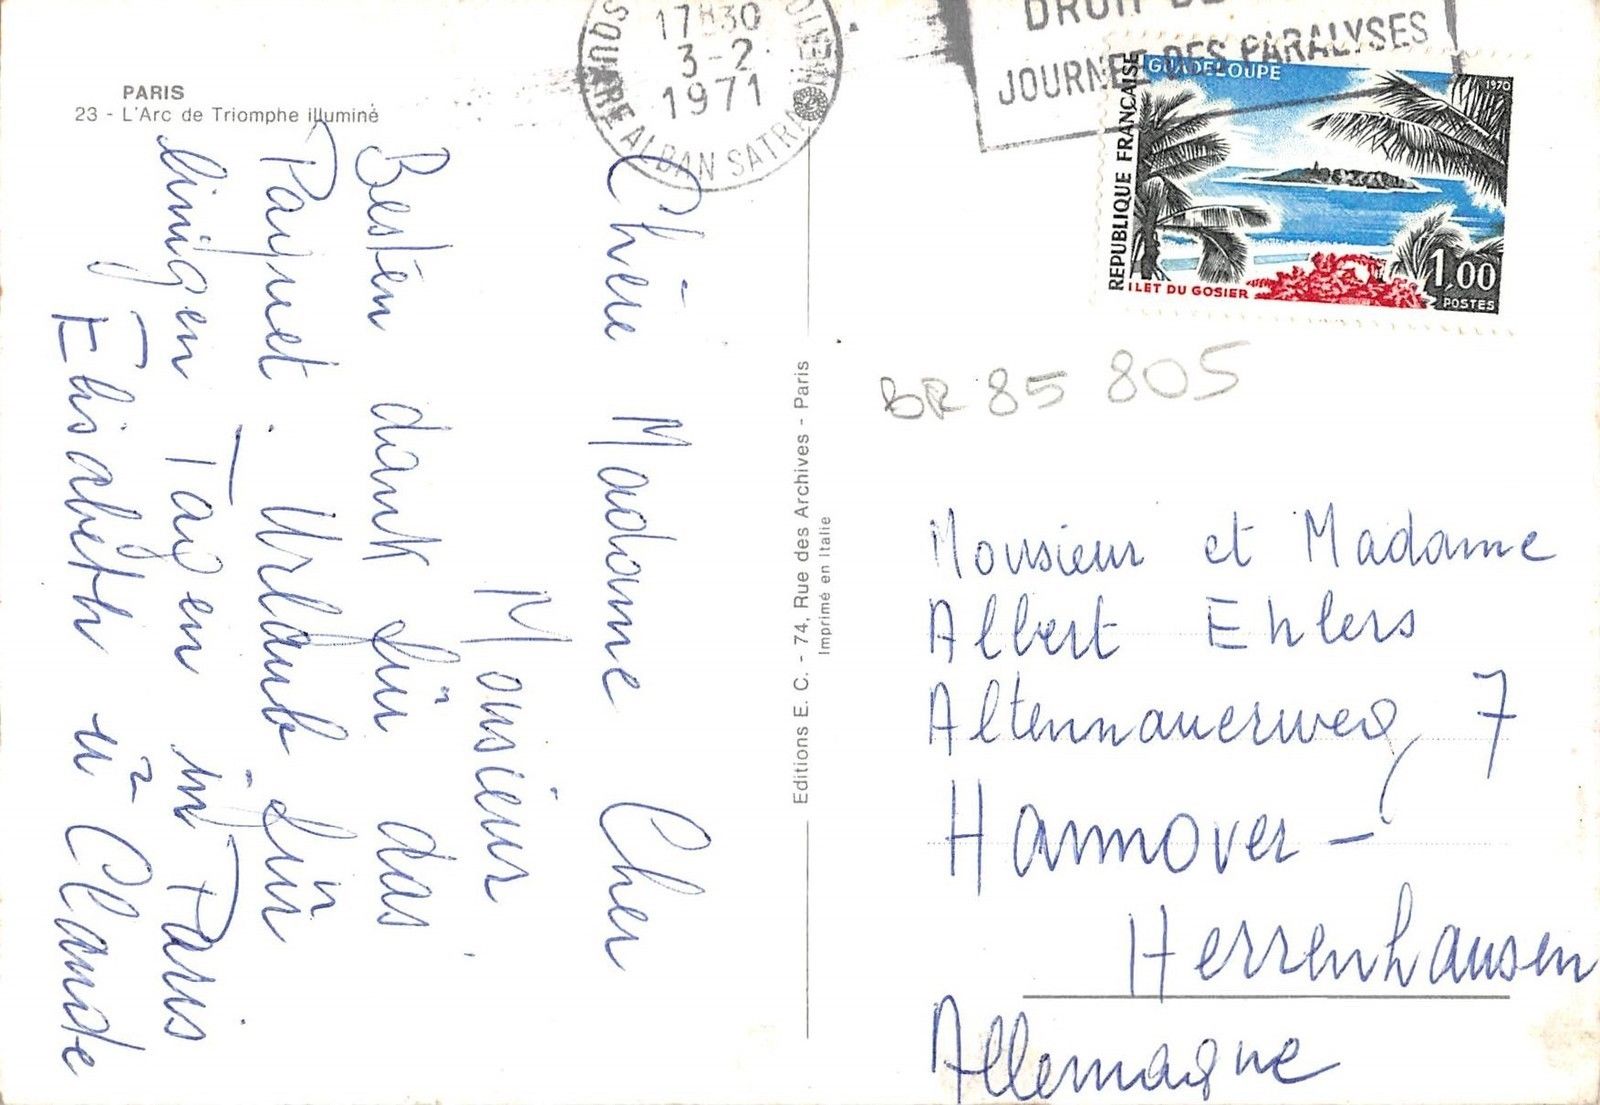 PARIS
23 - L'Arc de Triomphe illuminé
17H30
3-2
1971
SQUARE ALBAN SATRAGNE
DROIT DE
JOURNEE DES PARALYSES
REPUBLIQUE FRANÇAISE
GUADELOUPE
1970
ILET DU GOSIER
1,00
POSTES
BR 85 805
Chère Madame Cher
Monsieur
Besten dank für das
Paquet. Urlaub für
einigen Tagen in Paris
Elisabeth u Claude
Editions E. C. - 74, Rue des Archives - Paris
Imprimé en Italie
Monsieur et Madame
Albert Ehlers
Altennauerweg 7
Hannover -
Herrenhausen
Allemagne